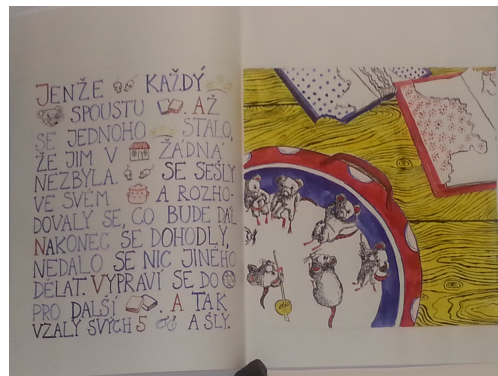 JENŽE KAŽDÝ
SPOUSTU AŽ
SE JEDNOHO STALO,
ŽE JIM V ŽÁDNÁ
NEZBYLA. SE SEŠLY
VE SVÉM A ROZHO-
DOVALY SE, CO BUDE DÁL
NAKONEC SE DOHODLY,
NEDALO SE NIC JINÉHO
DĚLAT. VYPRAVÍ SE DO
PRO DALŠÍ . A TAK
VZALY SVÝCH 5 A ŠLY.